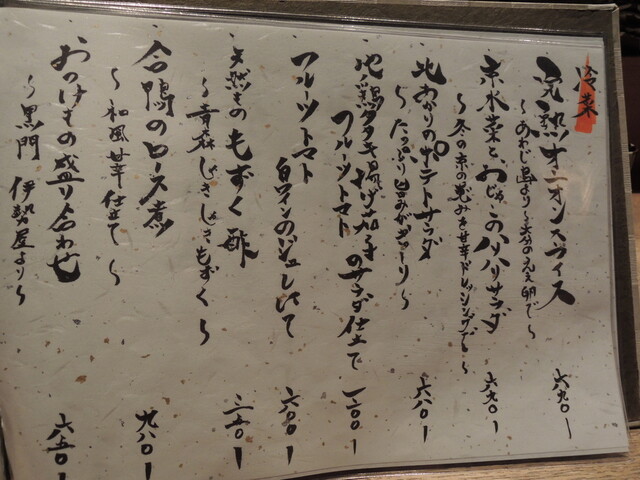 冷菜
完熟オニオンスライス
～あわじ島より～天分のええ卵で～
六九〇ー
京水菜と、おじゃこのハリハリサラダ
～冬の京の恵みを甘辛ドレッシングで～
六九〇ー
北あかりのポテトサラダ
～たっぷり旨みがギューリ～
六八〇ー
地鶏タタキ揚げ茄子のサラダ仕立て
フルーツトマト
一二〇〇ー
フルーツトマト
白ワインのジュレがけ
六〇〇ー
天然ものもずく酢
～青森じゃきじゃきもずく～
三五〇ー
合鴨のロース煮
～和風甘辛仕立て～
九八〇ー
おつけもの盛り合わせ
～黒門 伊勢屋より～
六五〇ー